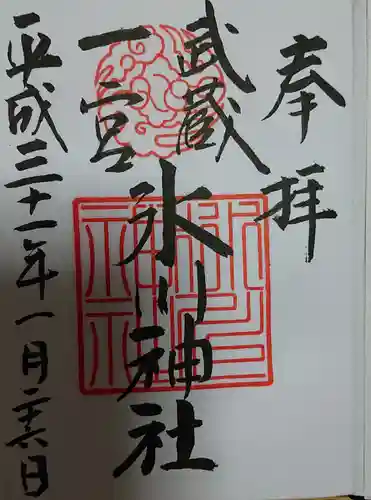 奉拝
武蔵
一宮
氷川神社
平成三十一年一月二十六日
氷川神社